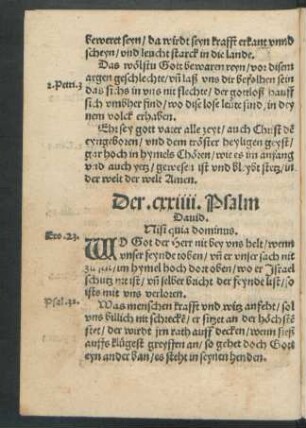 beweret seyn / da wirdt seyn krafft erkant vnnd
scheyn / vnd leucht starck in die lande.
Das wölstu Gott bewaren reyn / vor disem
argen geschlechte / vñ laß vns dir befolhen sein
2. Petri. 3 das sichs in vns nit flechte / der gottloß hauff
sich vmbher find / wo dise lose leüte sind / in dey
nem volck erhaben.
Ehr sey got vater alle zeyt / auch Christ dē
eyngeboren / vnd dem tröster heyligen geyst /
gar hoch in hymels Chören / wie es im anfang
vnd auch yetz / gewesen ist vnd bleybt stetz / in
der welt der welt Amen.
Der .cxxiiii. Psalm
Dauid.
Nisi quia dominus.
Exo. 23. WO Got der Herr nit bey vns helt / wenn
vnser feynde toben / vñ er vnser sach nit
im hymel hoch dort oben / wo er Israel
schutz nit ist / vñ selber bricht der feynde list / so
ists mit vns verloren.
Psal. 32. Was menschen krafft vnd witz anfeht / sol
vns billich nit schreckē / er sitzet an der höchstē
stet / der wirdt jrn rath auff decken / wenn sieß
auffs klügest greyffen an / so gehet doch Gott
eyn ander ban / es steht in seynen henden.